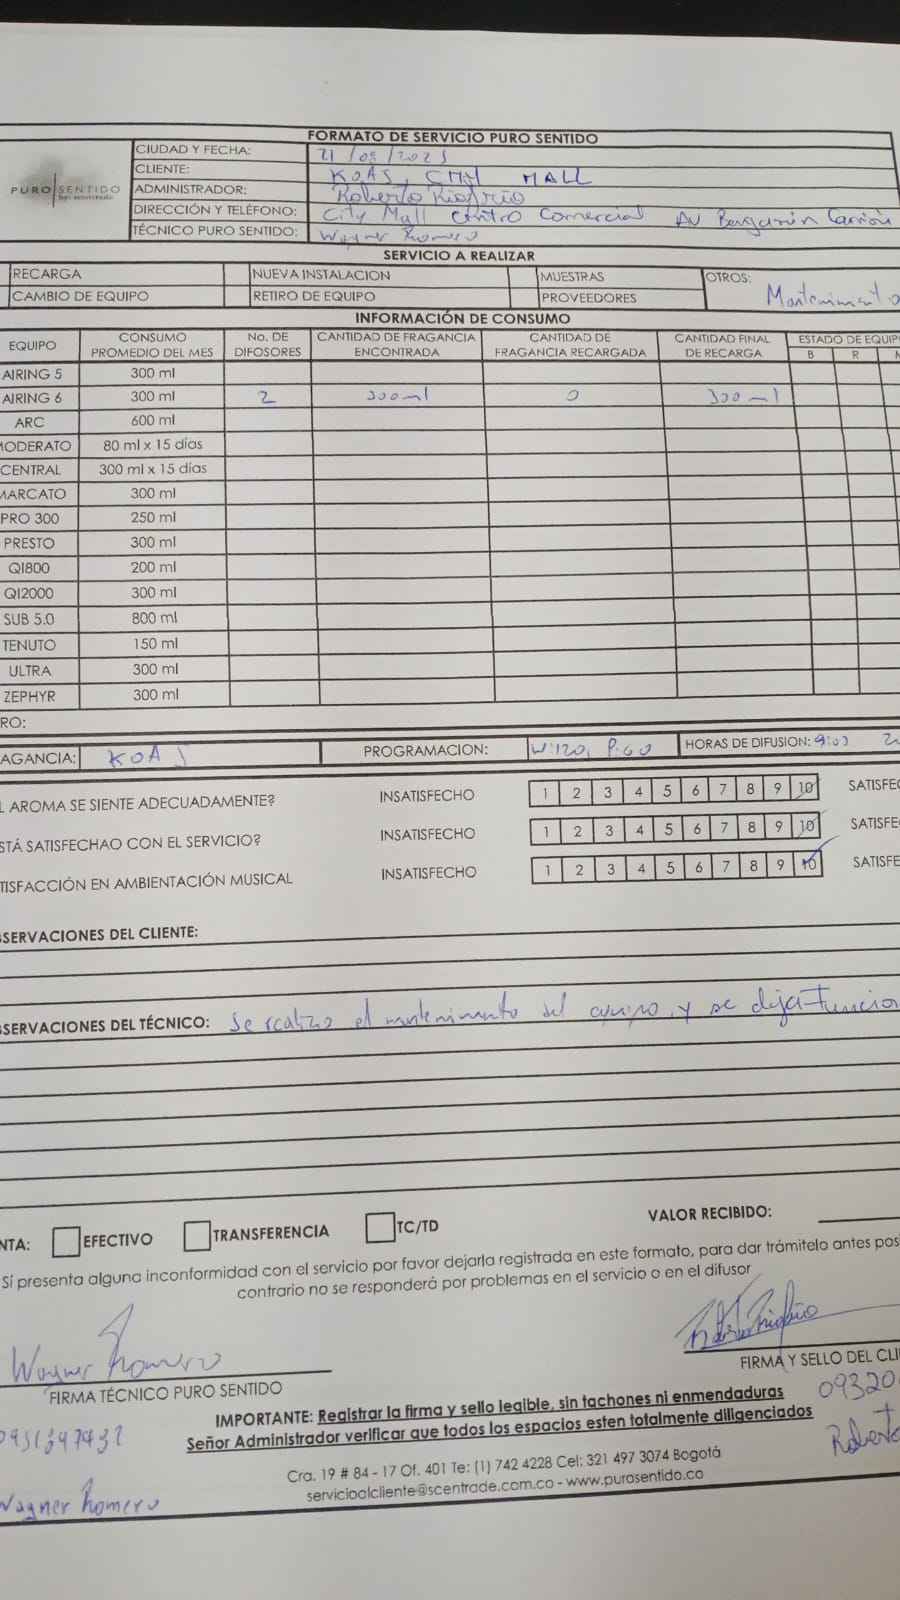 FORMATO DE SERVICIO PURO SENTIDO
PURO SENTIDO
CIUDAD Y FECHA: 21/05/2025
CLIENTE: KOAJ, CITY MALL
ADMINISTRADOR: Roberto Riofrio
DIRECCIÓN Y TELÉFONO: City Mall Centro Comercial Av Benjamin Carrión
TÉCNICO PURO SENTIDO: Wagner Romero
SERVICIO A REALIZAR
RECARGA NUEVA INSTALACION MUESTRAS OTROS:
CAMBIO DE EQUIPO RETIRO DE EQUIPO PROVEEDORES Mantenimiento
INFORMACIÓN DE CONSUMO
EQUIPO CONSUMO PROMEDIO DEL MES No. DE DIFOSORES CANTIDAD DE FRAGANCIA ENCONTRADA CANTIDAD DE FRAGANCIA RECARGADA CANTIDAD FINAL DE RECARGA ESTADO DE EQUIP
B R
AIRING 5 300 ml
AIRING 6 300 ml 2 300ml 0 300ml
ARC 600 ml
MODERATO 80 ml x 15 días
CENTRAL 300 ml x 15 días
MARCATO 300 ml
PRO 300 250 ml
PRESTO 300 ml
QI800 200 ml
QI2000 300 ml
SUB 5.0 800 ml
TENUTO 150 ml
ULTRA 300 ml
ZEPHYR 300 ml
RO:
AGANCIA: KOAJ PROGRAMACION: W:120, P:60 HORAS DE DIFUSION: 9:00
L AROMA SE SIENTE ADECUADAMENTE? INSATISFECHO 1 2 3 4 5 6 7 8 9 10 SATISFE
STÁ SATISFECHAO CON EL SERVICIO? INSATISFECHO 1 2 3 4 5 6 7 8 9 10 SATISFE
TISFACCIÓN EN AMBIENTACIÓN MUSICAL INSATISFECHO 1 2 3 4 5 6 7 8 9 10 SATISFE
BSERVACIONES DEL CLIENTE:
BSERVACIONES DEL TÉCNICO: Se realizo el mantenimiento del equipo, y se deja funcio
NTA: EFECTIVO TRANSFERENCIA TC/TD VALOR RECIBIDO:
Sí presenta alguna inconformidad con el servicio por favor dejarla registrada en este formato, para dar trámitelo antes pos
contrario no se responderá por problemas en el servicio o en el difusor
Wagner Romero
FIRMA TÉCNICO PURO SENTIDO FIRMA Y SELLO DEL CLI
IMPORTANTE: Registrar la firma y sello legible, sin tachones ni enmendaduras 09320
Señor Administrador verificar que todos los espacios esten totalmente diligenciados Roberto
Cra. 19 # 84 - 17 Of. 401 Te: (1) 742 4228 Cel: 321 497 3074 Bogotá
servicioalcliente@scentrade.com.co - www.purosentido.co
Wagner Romero